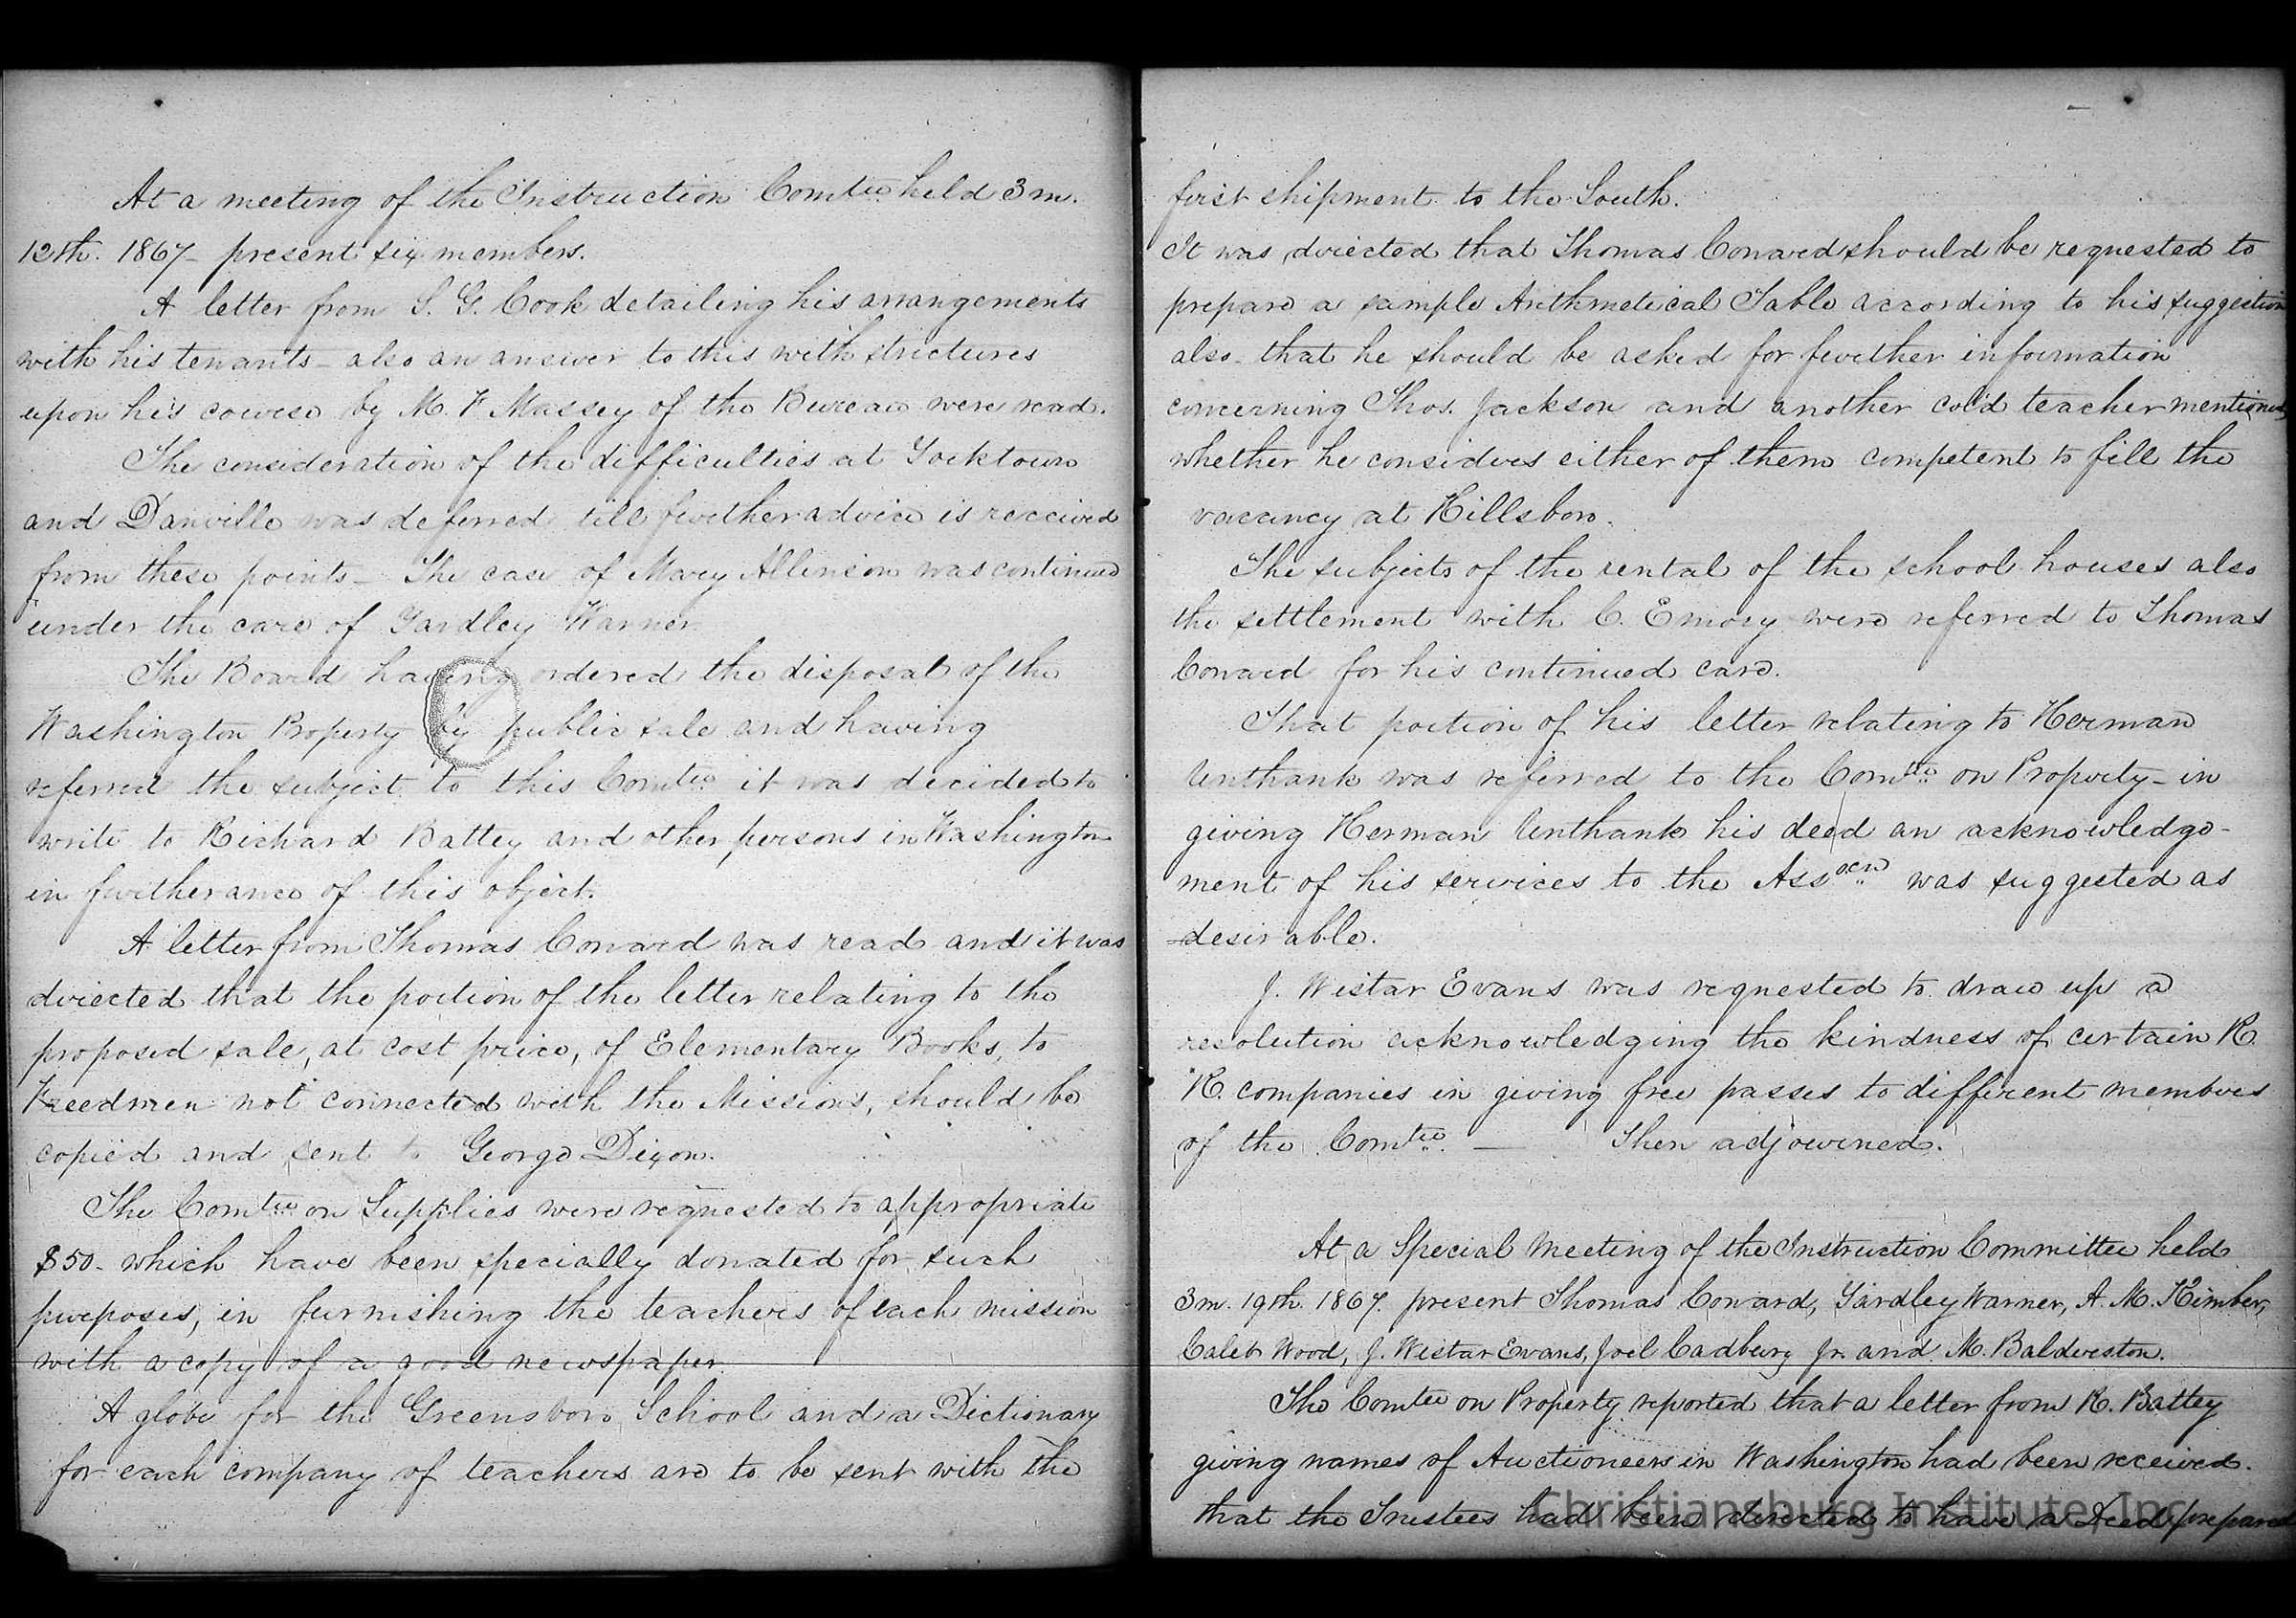 At a meeting of the Instruction Comtee. held 3 m.
12th. 1867 - present six members.
A letter from S. G. Cook detailing his arrangements
with his tenants - also an answer to this with strictures
upon his course by M. F Massey of the Bureau were read.
The consideration of the difficulties at Yorktown
and Danville was deferred till further advice is received
from these points - The case of Mary Allinson was continued
under the care of Yardley Warner.
The Board having ordered the disposal of the
Washington Property by public sale and having
referred the subject to this Comtee it was decided to
write to Richard Battey and other persons in Washington
in furtherance of this object.
A letter from Thomas Conard was read and it was
directed that the portion of the letter relating to the
proposed sale, at cost price, of Elementary Books, to
Freedmen not connected with the Missions, should be
copied and sent to George Dixon.
The Comtee on Supplies were requested to appropriate
$50 - which have been specially donated for such
purposes, in furnishing the teachers of each mission
with a copy of a good newspaper.
A globe for the Greensboro School and a Dictionary
for each company of teachers are to be sent with the
first shipment to the South.
It was directed that Thomas Conard should be requested to
prepare a sample Arithmetical Table according to his suggestion
also - that he should be asked for further information
concerning Thos. Jackson and another col'd teacher mentioned,
whether he considers either of them competent to fill the
vacancy at Hillsboro.
The subjects of the rental of the school houses also
the settlement with C. Emory were referred to Thomas
Conard for his continued care.
That portion of his letter relating to Herman
Unthank was referred to the Comtee. on Property - in
giving Herman Unthank his deed an acknowledge-
ment of his services to the Assocn was suggested as
desirable.
J. Wistar Evans was requested to draw up a
resolution acknowledging the kindness of certain R.
R. companies in giving free passes to different members
of the Comtee. — Then adjourned.
At a Special Meeting of the Instruction Committee held
3 m. 19th. 1867. present Thomas Conard, Yardley Warner, A. M. Kimber,
Caleb Wood, J. Wistar Evans, Joel Cadbury Jr. and M. Balderston.
The Comtee on Property reported that a letter from R. Battey
giving names of Auctioneers in Washington had been received.
that the Trustees had been directed to have a Deed prepared
Christiansburg Institute, Inc.